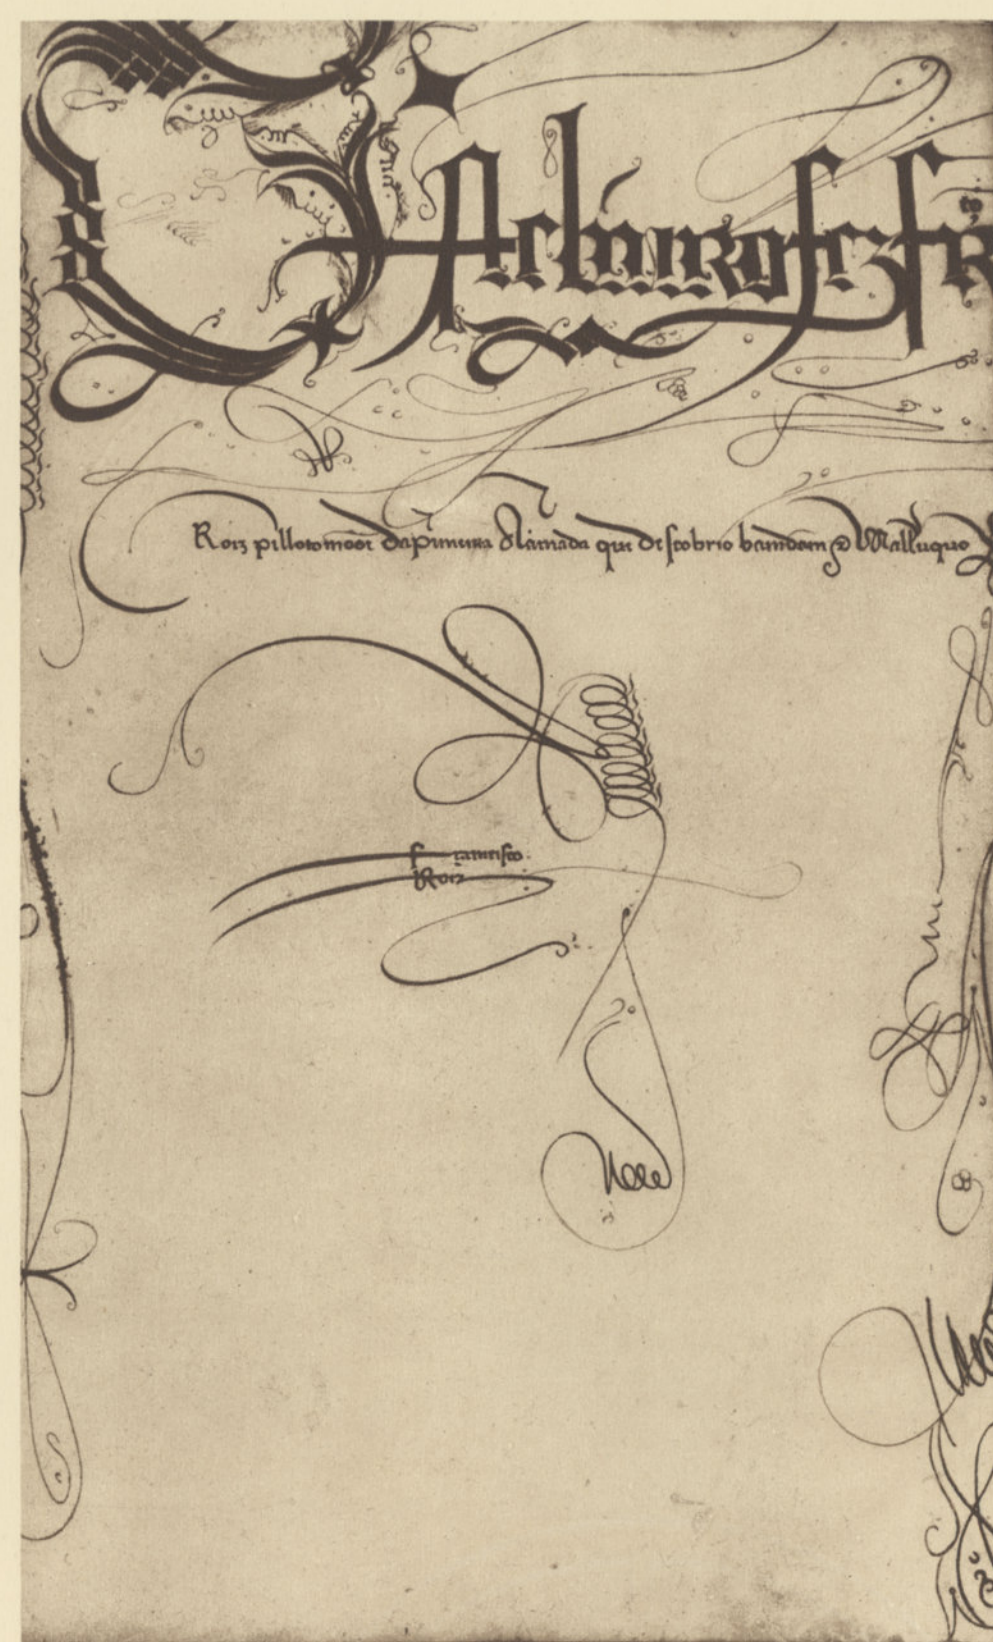 Este livro fez fr.co
Roiz pilloto moor da primeira Armada que descobrio bandam & Malluquo
françisco
Roiz